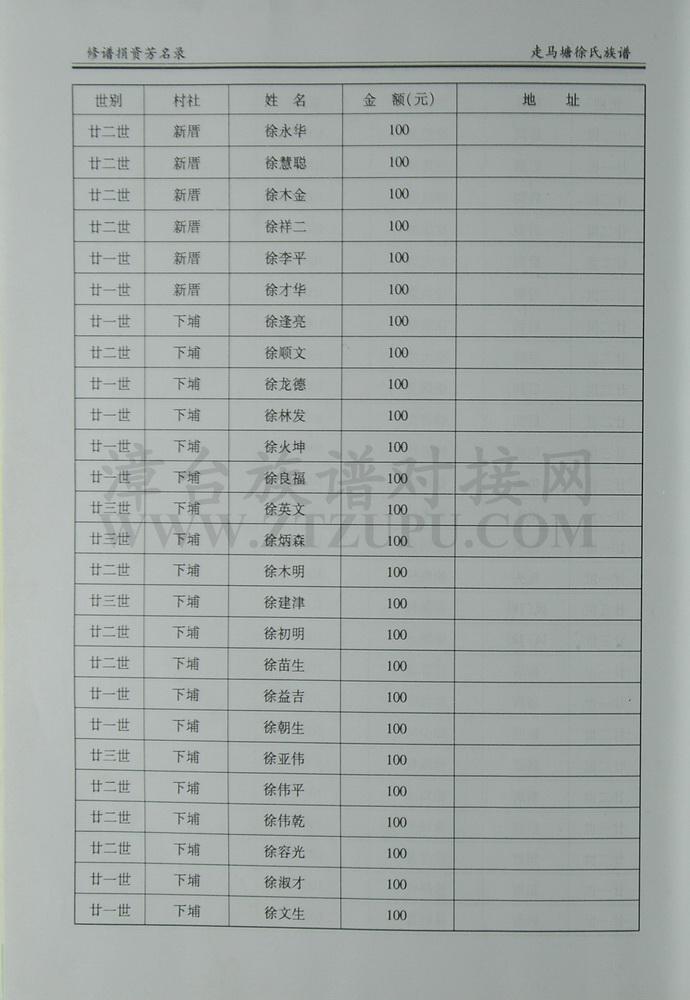 修谱捐资芳名录 走马塘徐氏族谱
世别 村社 姓 名 金 额(元) 地 址
廿二世 新厝 徐永华 100
廿二世 新厝 徐慧聪 100
廿二世 新厝 徐木金 100
廿二世 新厝 徐祥二 100
廿一世 新厝 徐李平 100
廿一世 新厝 徐才华 100
廿一世 下埔 徐逢亮 100
廿二世 下埔 徐顺文 100
廿一世 下埔 徐龙德 100
廿一世 下埔 徐林发 100
廿一世 下埔 徐火坤 100
廿一世 下埔 徐良福 100
廿三世 下埔 徐英文 100
廿三世 下埔 徐炳森 100
廿二世 下埔 徐木明 100
廿三世 下埔 徐建津 100
廿二世 下埔 徐初明 100
廿二世 下埔 徐苗生 100
廿一世 下埔 徐益吉 100
廿一世 下埔 徐朝生 100
廿三世 下埔 徐亚伟 100
廿二世 下埔 徐伟平 100
廿二世 下埔 徐伟乾 100
廿二世 下埔 徐容光 100
廿一世 下埔 徐淑才 100
廿一世 下埔 徐文生 100
漳台族谱对接网
WWW.ZTZUPU.COM